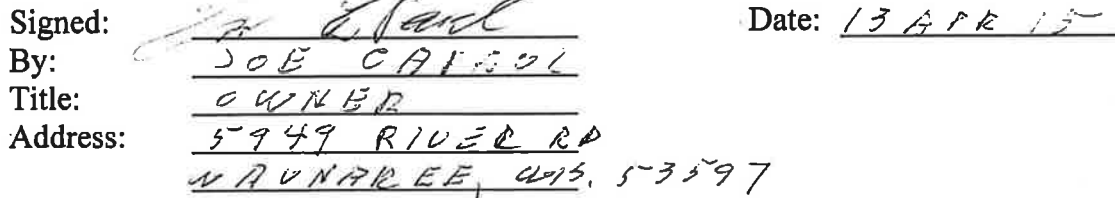 Signed: Date: 13 APR 15
By: JOE
Title: OWNER
Address: 5949 RIVER RD
WAUNAKEE, WIS. 53597